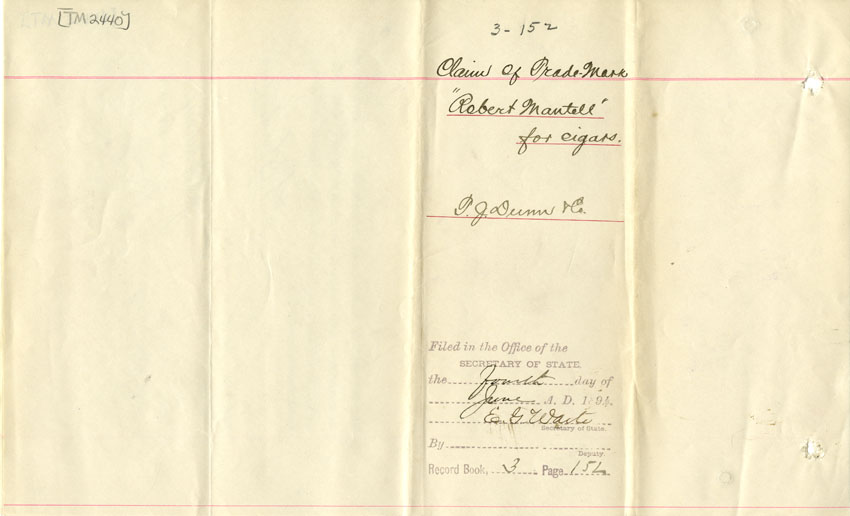 [TM 2440]
3-152
Claim of Trade-Mark
"Robert Mantell"
for cigars.
P. J. Dunn & Co.
Filed in the Office of the
SECRETARY OF STATE,
the fourth day of
June A. D. 1894.
E. G. Waite
Secretary of State.
By
Deputy.
Record Book, 3 Page 152